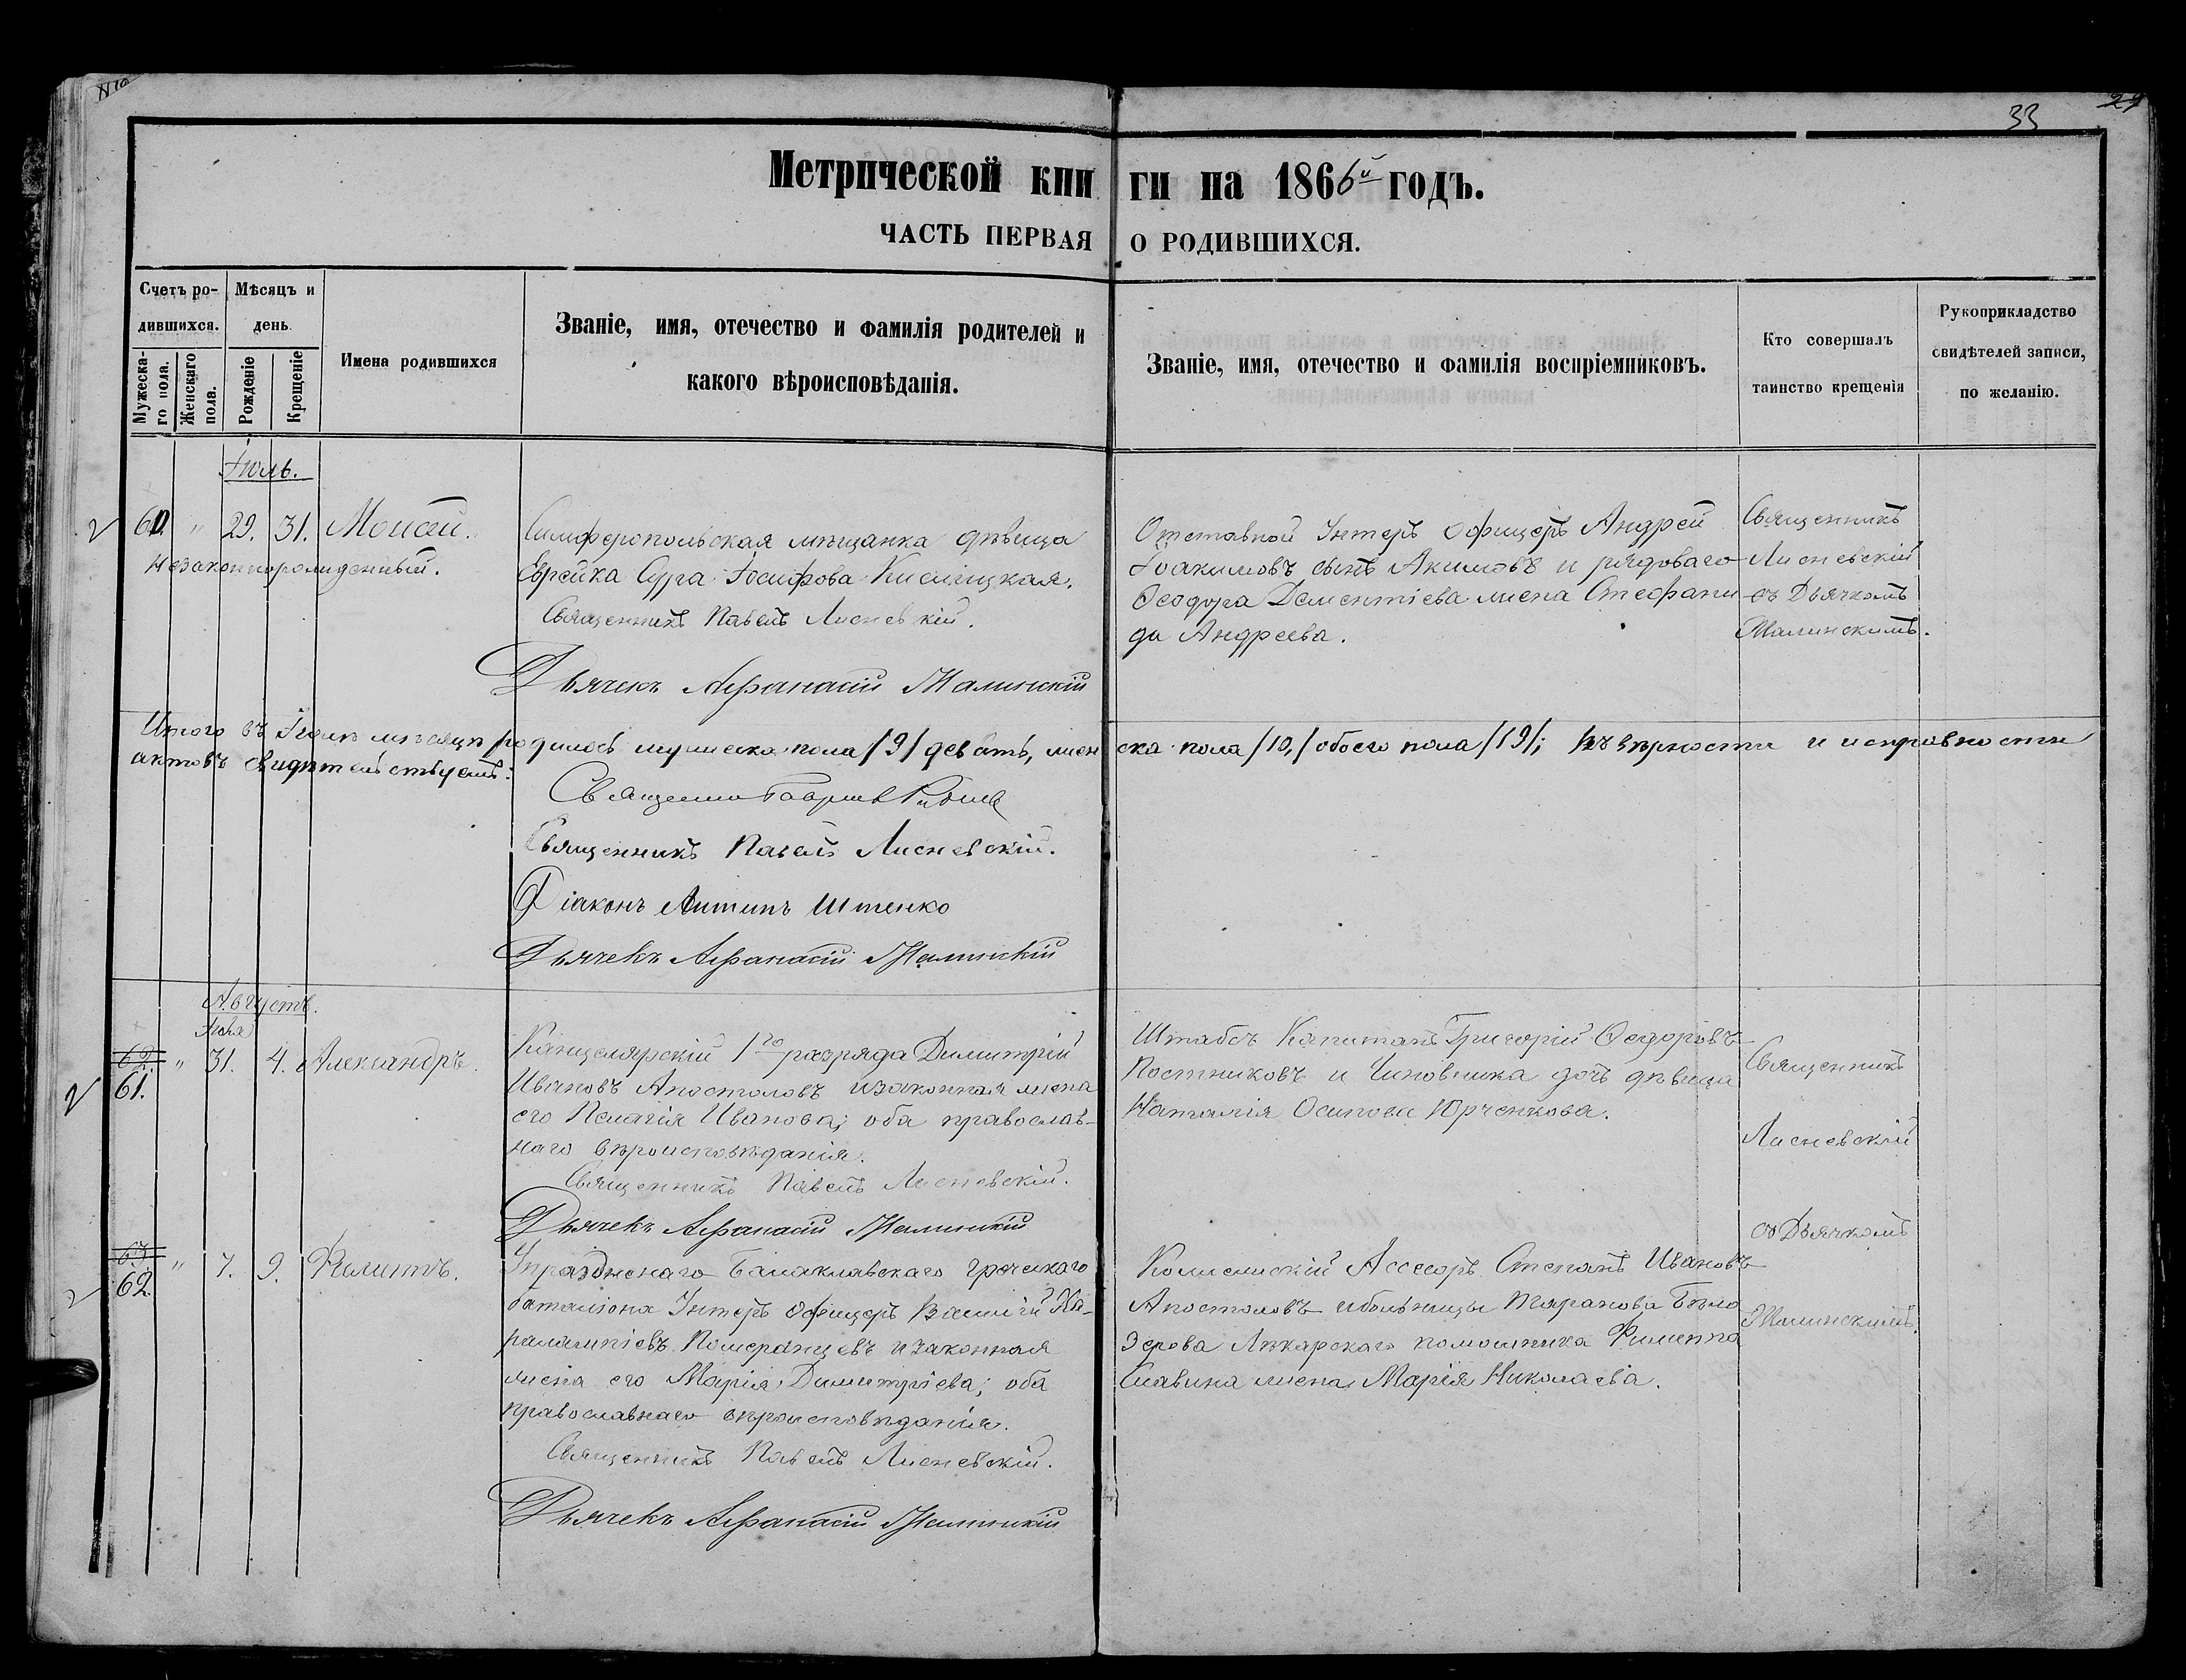 33
29
Метрической кни ги на 1866й годъ.
ЧАСТЬ ПЕРВАЯ О РОДИВШИХСЯ.
Счетъ ро-
дившихся.
Мѣсяцъ и
день.
Мужеска-
го пола.
Женскаго
пола.
Рожденіе
Крещеніе
Имена родившихся
Званіе, имя, отечество и фамилія родителей и
какого вѣроисповѣданія.
Званіе, имя, отечество и фамилія воспріемниковъ.
Кто совершалъ
таинство крещенія
Рукоприкладство
свидѣтелей записи,
по желанію.
Іюль.
60. " 29. 31. Моисей.
Незаконнорожденный.
Симферопольская мѣщанка дѣвица
Еврейка Сура Іосифова Кисилицкая.
Священникъ Павелъ Лисневскій.
Дьячекъ Афанасій Малинскій
Отставной Унтеръ Офицеръ Андрей
Іоакимовъ сынъ Акимовъ и рядоваго
Ѳеодора Дементіева жена Стефани
да Андреева.
Священникъ
Лисневскій
съ Дьячкомъ
Малинскимъ.
Итого въ Іюлѣ мѣсяцѣ родилось мужеска пола /9/ девять, жен ска пола /10,/ обоего пола /19/; въ вѣрности и исправности
актовъ свидѣтельствуемъ:
Священникъ Гавріилъ
Священникъ Павелъ Лисневскій.
Діаконъ Антипъ Штенко
Дьячекъ Афанасій Малинскій
Августъ.
Іюля
62. " 31. 4. Александръ.
61.
Канцелярскій 1го разряда Димитрій
Ивановъ Апостоловъ и законная жена
его Пелагія Иванова; оба православ-
наго вѣроисповѣданія.
Священникъ Павелъ Лисневскій.
Дьячекъ Афанасій Малинскій
Штабсъ Капитанъ Григорій Ѳеодоровъ
Постниковъ и Чиновника дочь дѣвица
Наталія Осипова Юрченкова.
Священникъ
Лисневскій
съ Дьячкомъ
Малинскимъ.
63. " 7. 9. Филиппъ.
62.
Упраздненаго Балаклавскаго греческаго
баталіона Унтеръ Офицеръ Василій Ха-
ралампіевъ Померанцевъ и законная
жена его Марія Димитріева; оба
православнаго вѣроисповѣданія.
Священникъ Павелъ Лисневскій.
Дьячекъ Афанасій Малинскій
Колежскій Ассесоръ Степанъ Ивановъ
Апостоловъ и больницы Таранова Бѣло
зерова Лѣкарскаго помошника Филиппа
Славина жена Марія Николаева.